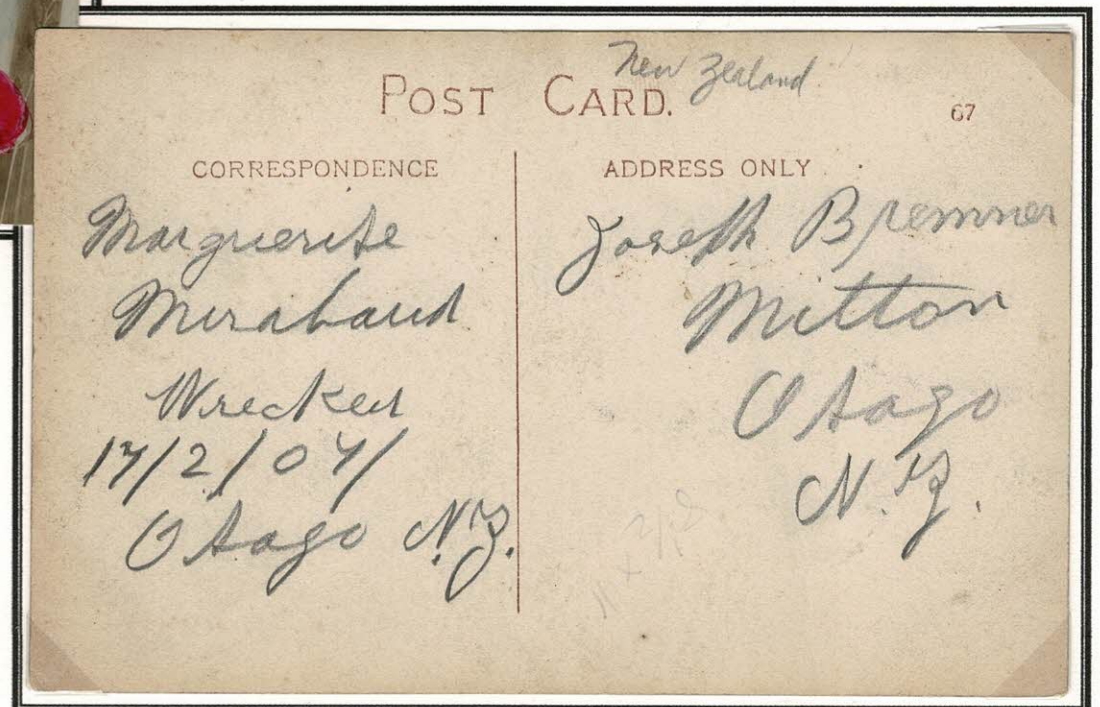 New Zealand
POST CARD.
67
CORRESPONDENCE
Marguerite
Mirabaud
Wrecked
17/2/07/
Otago N.Z.
ADDRESS ONLY
Joseph Bremner
Milton
Otago
N.Z.